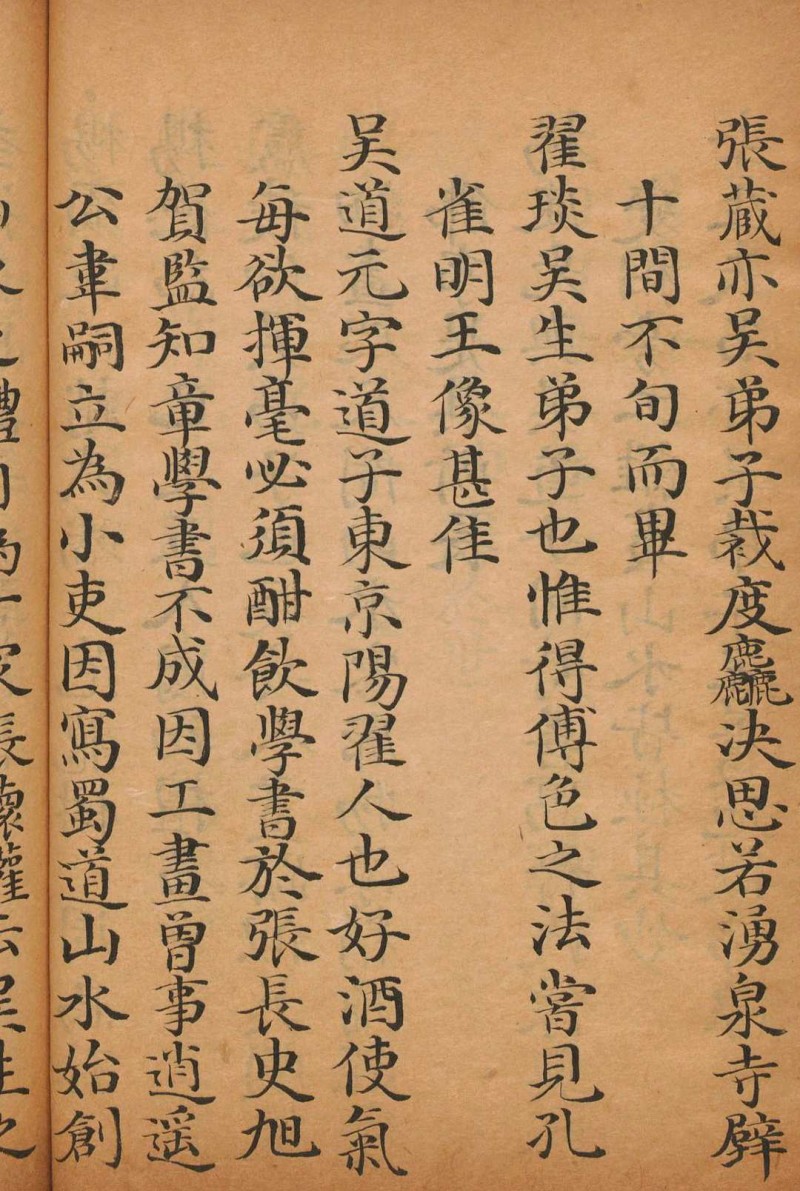 張蔵亦吴弟子裁度麤决思若湧泉寺壁
十間不旬而畢
翟琰吴生弟子也惟得傅色之法嘗見孔
雀明王像甚佳
吴道元字道子東京陽翟人也好酒使氣
每欲揮毫必須酣飲學書於張長史旭
賀監知章學書不成因工畫曾事逍遥
公韋嗣立為小吏因寫蜀道山水始創
山水之體自為一家張懷瓘云吴生之